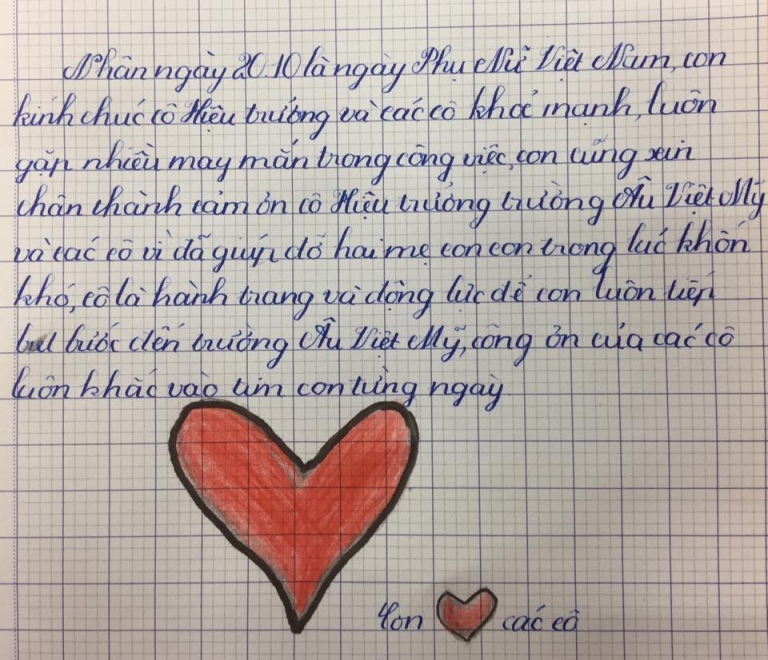 Nhân ngày 20.10 là ngày Phụ Nữ Việt Nam, con
kính chúc cô Hiệu trưởng và các cô khỏe mạnh, luôn
gặp nhiều may mắn trong công việc, con cũng xin
chân thành cảm ơn cô Hiệu trưởng trường Âu Việt Mỹ
và các cô vì đã giúp đỡ hai mẹ con con trong lúc khốn
khó, cô là hành trang và động lực để con luôn tiếp
bước đến trường Âu Việt Mỹ, công ơn của các cô
luôn khắc vào tim con từng ngày
Con các cô